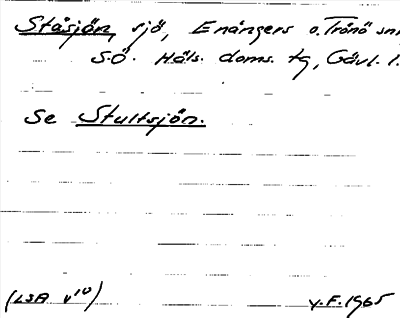 Ståsjön, sjö, Enångers o. Trönö snr
S.Ö. Häls. doms. tg, Gävl. l.
Se Stultsjön.
(LSA V¹⁰)
Y.F. 1965